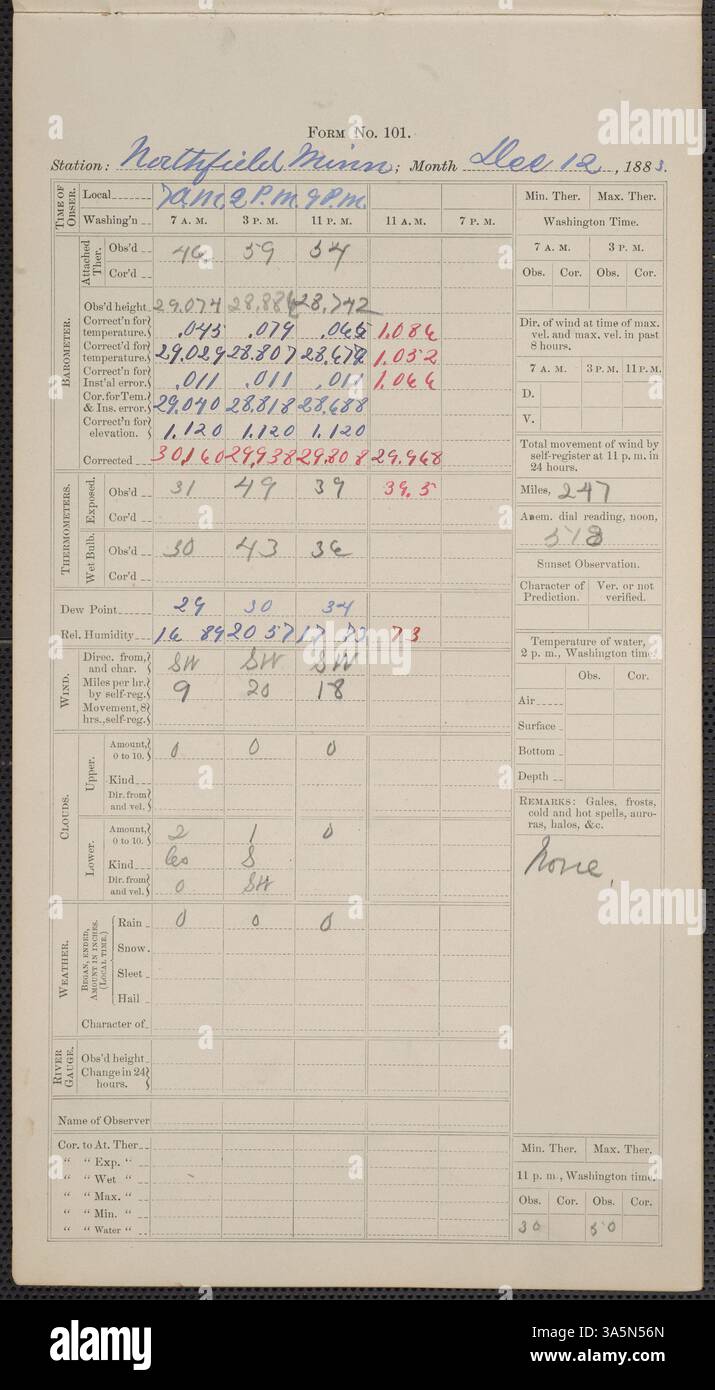 FORM No. 101.
Station: Northfield Minn; Month Dec 12, 1883.
TIME OF OBSER.
Local 7 A.M. 2 P.M. 9 P.M.
Washing'n 7 A. M. 3 P. M. 11 P. M. 11 A. M. 7 P. M.
Attached Ther.
Obs'd 46 59 54
Cor'd
BAROMETER.
Obs'd height 29.074 28.886 28.742
Correct'n for temperature. .045 .079 .065 1.086
Correct'd for temperature. 29.029 28.807 28.678 1.052
Correct'n for Inst'al error. .011 .011 .011 1.066
Cor. for Tem. & Ins. error. 29.040 28.818 28.688
Correct'n for elevation. 1.120 1.120 1.120
Corrected 30.160 29.938 29.808 29.968
THERMOMETERS.
Exposed.
Obs'd 31 49 39 39.5
Cor'd
Wet Bulb.
Obs'd 30 43 36
Cor'd
Dew Point 29 30 34
Rel. Humidity 16 89 20 57 17 73 73
WIND.
Direc. from, and char. SW SW SW
Miles per hr. by self-reg. 9 20 18
Movement, 8 hrs., self-reg.
CLOUDS.
Upper.
Amount, 0 to 10. 0 0 0
Kind
Dir. from and vel.
Lower.
Amount, 0 to 10. 2 1 0
Kind S
Dir. from and vel. 0 SW
WEATHER.
BEGAN, ENDED, AMOUNT IN INCHES. (LOCAL TIME.)
Rain 0 0 0
Snow.
Sleet
Hail
Character of
RIVER GAUGE.
Obs'd height
Change in 24 hours.
Name of Observer
Cor. to At. Ther
" " Exp. "
" " Wet "
" " Max. "
" " Min. "
" " Water "
Min. Ther. Max. Ther.
Washington Time.
7 A. M. 3 P. M.
Obs. Cor. Obs. Cor.
Dir. of wind at time of max. vel. and max. vel. in past 8 hours.
7 A. M. 3 P. M. 11 P. M.
D.
V.
Total movement of wind by self-register at 11 p. m. in 24 hours.
Miles, 247
Anem. dial reading, noon,
518
Sunset Observation.
Character of Prediction. Ver. or not verified.
Temperature of water, 2 p. m., Washington time.
Obs. Cor.
Air
Surface
Bottom
Depth
REMARKS: Gales, frosts, cold and hot spells, auroras, halos, &c.
None.
Min. Ther. Max. Ther.
11 p. m., Washington time.
Obs. Cor. Obs. Cor.
30 50
alamy
Image ID: 3A5N56N
www.alamy.com